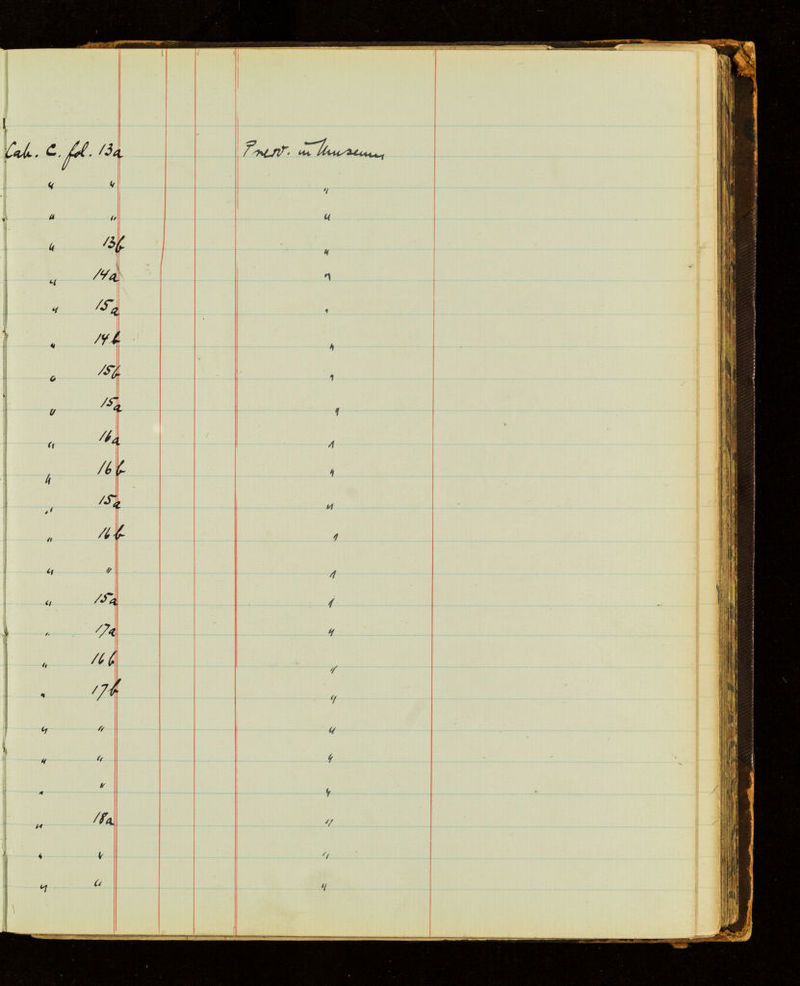 Cab. C. fol. 13a Preserv. in Museum
" " "
" " "
" 13b "
" 14a "
" 15a "
" 14b "
" 15b "
" 15a "
" 16a "
" 16b "
" 15a "
" 16b "
" " "
" 15a "
" 17a "
" 16b "
" 17b "
" " "
" " "
" " "
" 18a "
" " "
" " "